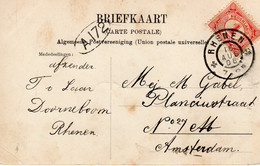 BRIEFKAART
(CARTE POSTALE)
Algemeene Postvereeniging (Union postale universelle)
Mededeelingen:
A172
RHENEN
afzender
T v Leier
Doorneboom
Rhenen
Mej M. Gabel,
Planciusstraat
No 27 M
Amsterdam.